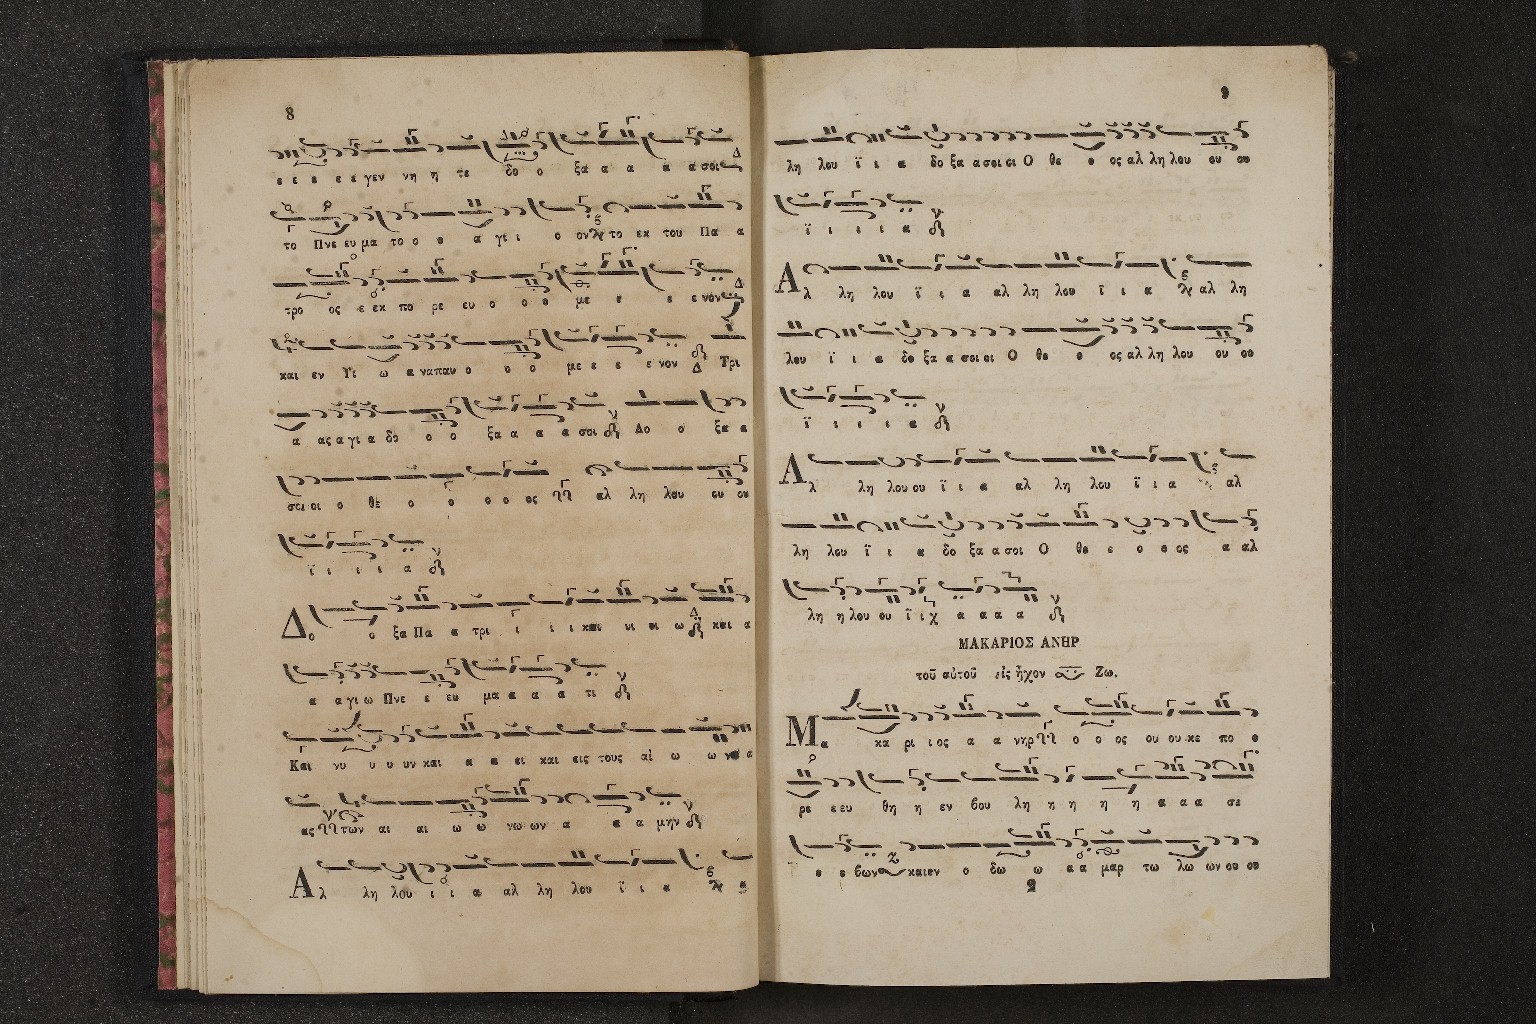 8
ε ε ε ε ε γεν νη η τε δο ο ξα α α α α σοι
το Πνε ευ μα το ο ο α γι ι ο ον το εκ του Πα α
τρο ος ε εκ πο ρε ευ ο ο ο με ε ε ε νον
και εν Υι ω α να παυ ο ο ο με ε ε ε νον Δ Τρι
α ας α γι α δο ο ο ξα α α α σοι Δο ο ξα α
σοι οι ο θε ο ο ο ο ος αλ λη λου ου ου
ϊ ι ι ι α
Δο ο ξα Πα α τρι ι ι ι και υι οι ω και α
α α γι ω Πνε ε ευ μα α α α τι
Και νυ υ υ υν και α α ει και εις τους αι ω ω να α
ας των αι αι ω ω νω ων α α α μην
Αλ λη λου ι ι α αλ λη λου ϊ ι α α
9
λη λου ϊ ι α δο ξα α σοι οι Ο θε ο ος αλ λη λου ου ου
ϊ ι ι ι α
Αλ λη λου ϊ ι α αλ λη λου ϊ ι α αλ λη
λου ϊ ι α δο ξα α σοι οι Ο θε ο ος αλ λη λου ου ου
ϊ ι ι ι α
Αλ λη λου ου ϊ ι α αλ λη λου ϊ ι α αλ
λη λου ϊ ι α δο ξα α σοι Ο θε ε ο ο ος α αλ
λη η λου ου ϊ ι χ α α α α
ΜΑΚΑΡΙΟΣ ΑΝΗΡ
τοῦ αὐτοῦ εἰς ἦχον Ζω.
Μα κα ρι ι ος α α νηρ ο ο ος ου ου κε πο ο
ρε ε ευ θη η εν βου λη η η η η α α α σε
ε ε βων και εν ο δω ω α α μαρ τω λω ων ου ου
2